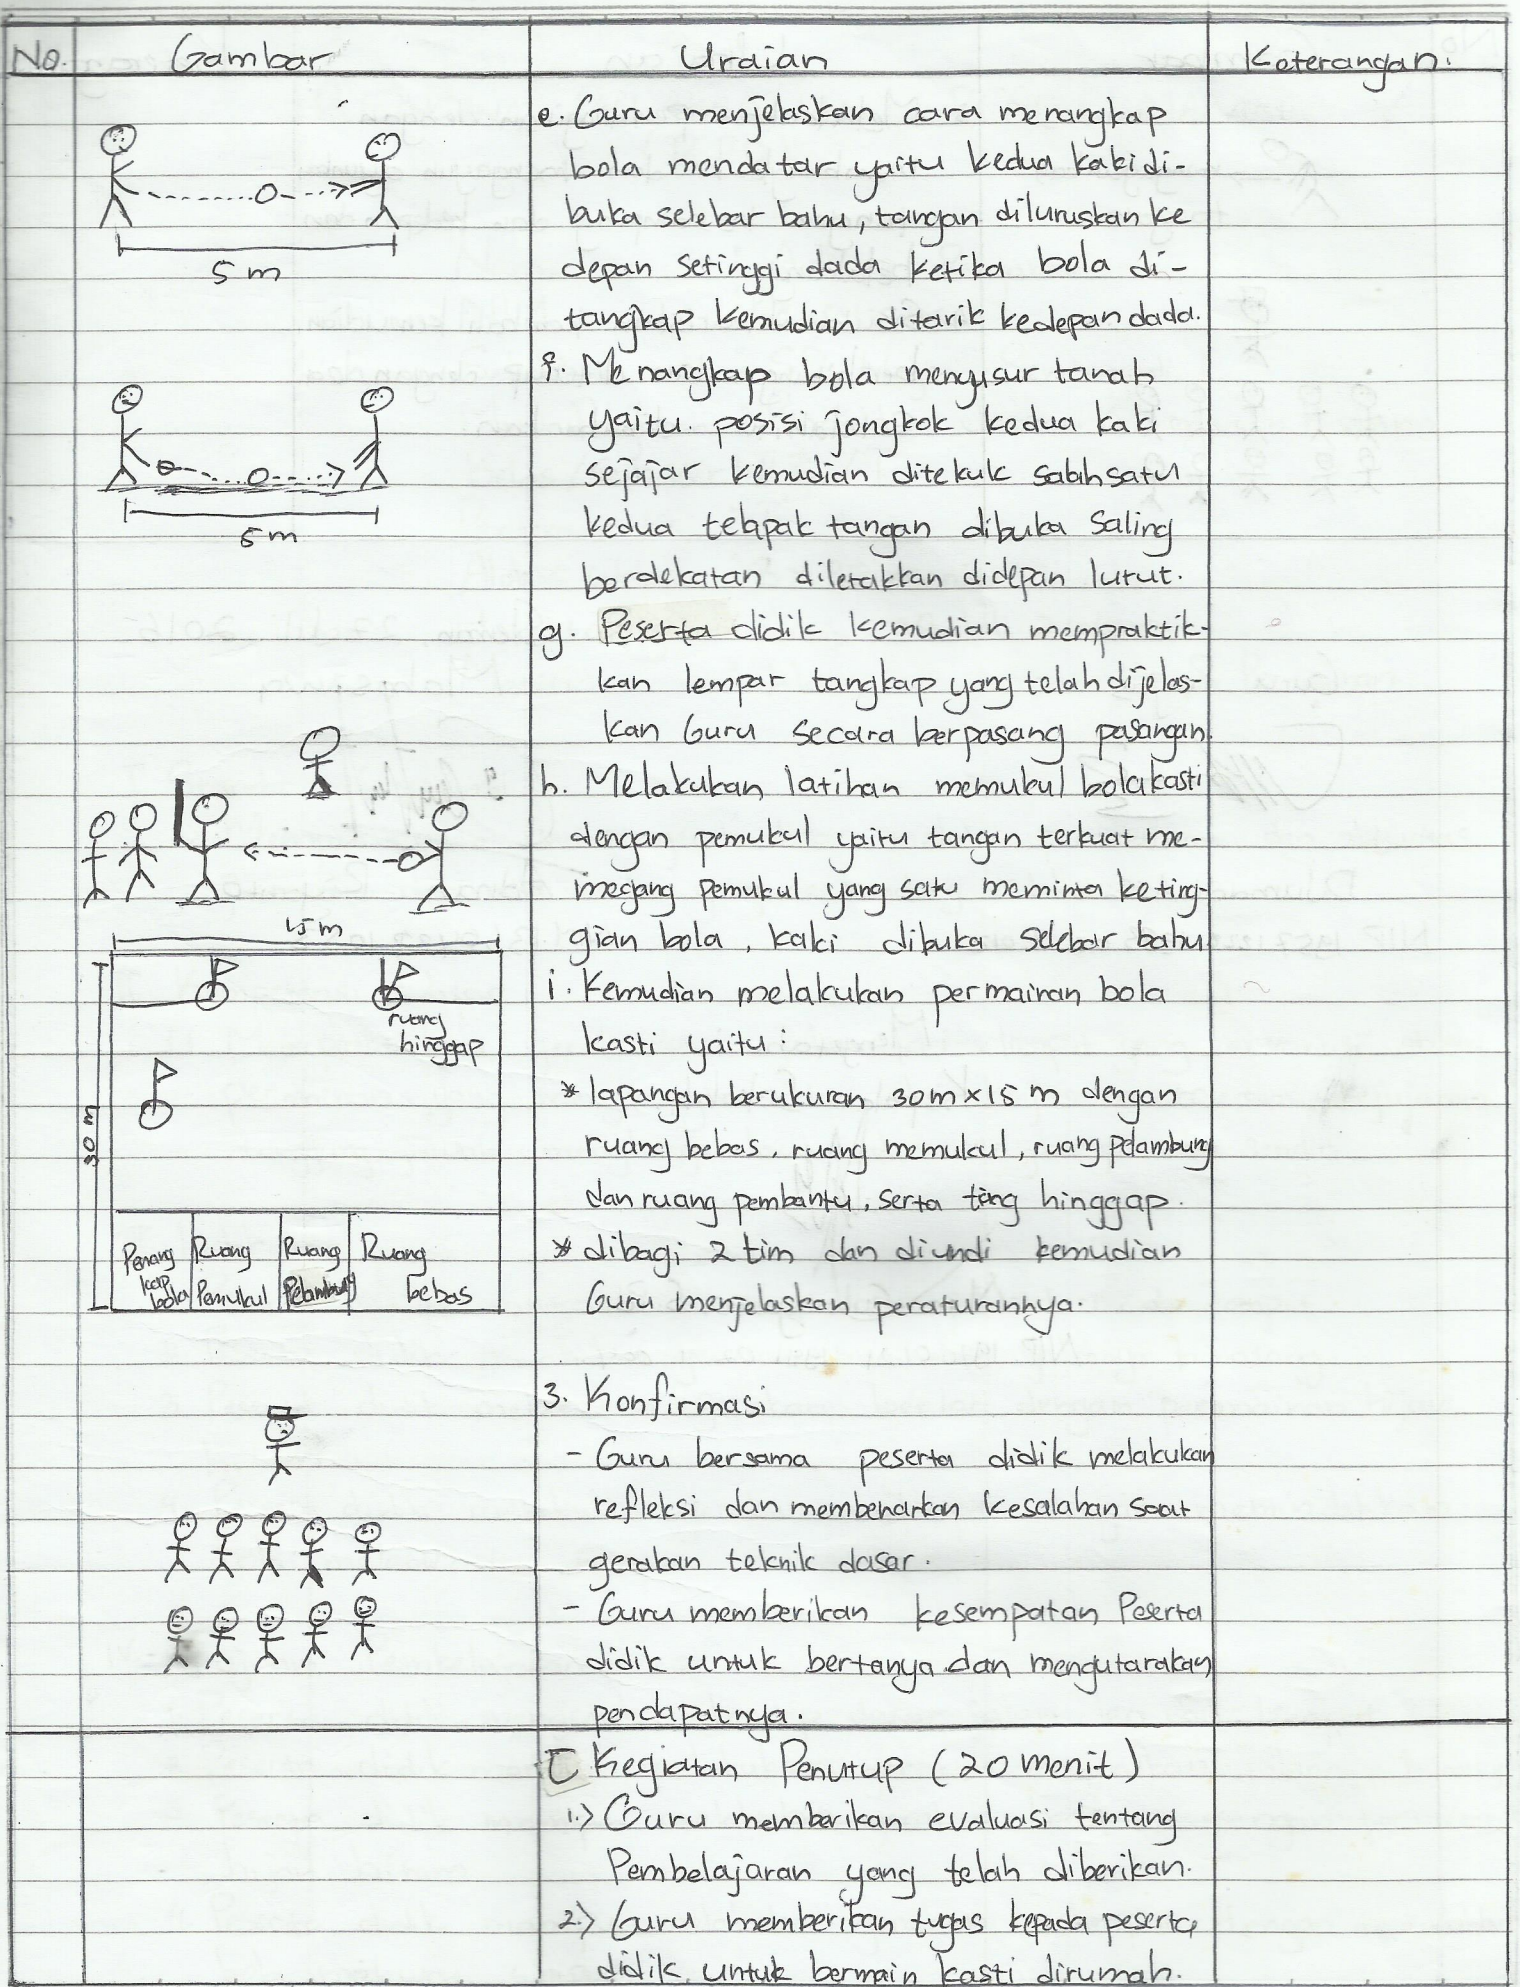 No. Gambar Uraian Keterangan.
e. Guru menjelaskan cara menangkap
bola mendatar yaitu kedua kaki di-
buka selebar bahu, tangan diluruskan ke
depan setinggi dada ketika bola di-
tangkap kemudian ditarik kedepan dada.
5 m
f. Menangkap bola menyusur tanah
yaitu. posisi jongkok kedua kaki
sejajar kemudian ditekuk salah satu
kedua telapak tangan dibuka saling
berdekatan diletakkan didepan lutut.
5 m
g. Peserta didik kemudian mempraktik-
kan lempar tangkap yang telah dijelas-
kan Guru secara berpasang pasangan
h. Melakukan latihan memukul bola kasti
dengan pemukul yaitu tangan terkuat me-
megang pemukul yang satu meminta keting-
gian bola, kaki dibuka selebar bahu
i. Kemudian melakukan permainan bola
kasti yaitu :
* lapangan berukuran 30 m x 15 m dengan
ruang bebas, ruang memukul, ruang pelambung
dan ruang pembantu, serta tiang hinggap.
* dibagi 2 tim dan diundi kemudian
Guru menjelaskan peraturannya.
15 m
ruang
hinggap
30 m
Penang
kap
bola
Ruang
Pemukul
Ruang
Pelambung
Ruang
bebas
3. Konfirmasi
- Guru bersama peserta didik melakukan
refleksi dan membenarkan kesalahan saat
gerakan teknik dasar.
- Guru memberikan kesempatan Peserta
didik untuk bertanya dan mengutarakan
pendapatnya.
C Kegiatan Penutup (20 menit)
1.) Guru memberikan evaluasi tentang
Pembelajaran yang telah diberikan.
2.) Guru memberikan tugas kepada peserta
didik untuk bermain kasti dirumah.